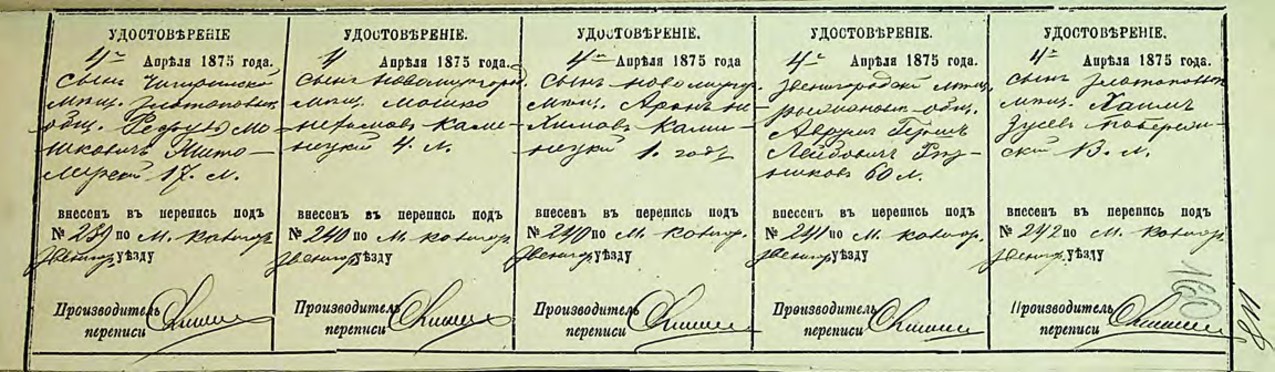 УДОСТОВѢРЕНІЕ
4го Апрѣля 1875 года.
сынъ Чигиринскій
мѣщ. златопольск.
общ. Мо-
шковичъ Жито-
мирскій 17. л.
внесенъ въ перепись подъ
№ 239 по м. Катыгор.
Звенигор. уѣзду
Производитель
переписи
УДОСТОВѢРЕНІЕ.
4 Апрѣля 1875 года.
сынъ новомиргород.
мѣщ. Мошко
Каме-
нецкій 4. л.
внесенъ въ перепись подъ
№ 240 по м. Катыгор.
Звенигор. уѣзду
Производитель
переписи
УДОСТОВѢРЕНІЕ.
4го Апрѣля 1875 года
сынъ новомиргор.
мѣщ. Аронъ Не-
химовъ Каме-
нецкій 1. годъ
внесенъ въ перепись подъ
№ 240 по м. Катыгор.
Звенигор. уѣзду
Производитель
переписи
УДОСТОВѢРЕНІЕ.
4го Апрѣля 1875 года.
Звенигородскій мѣщ.
общ.
Аврумъ Гершъ
Лейбовичъ
60 л.
внесенъ въ перепись подъ
№ 241 по м. Катыгор.
Звенигор. уѣзду
Производитель
переписи
УДОСТОВѢРЕНІЕ.
4го Апрѣля 1875 года.
сынъ златопольск.
мѣщ. Хаимъ
Зусевъ Побереж-
скій 13. л.
внесенъ въ перепись подъ
№ 242 по м. Катыгор.
Звенигор. уѣзду
Производитель
переписи
160